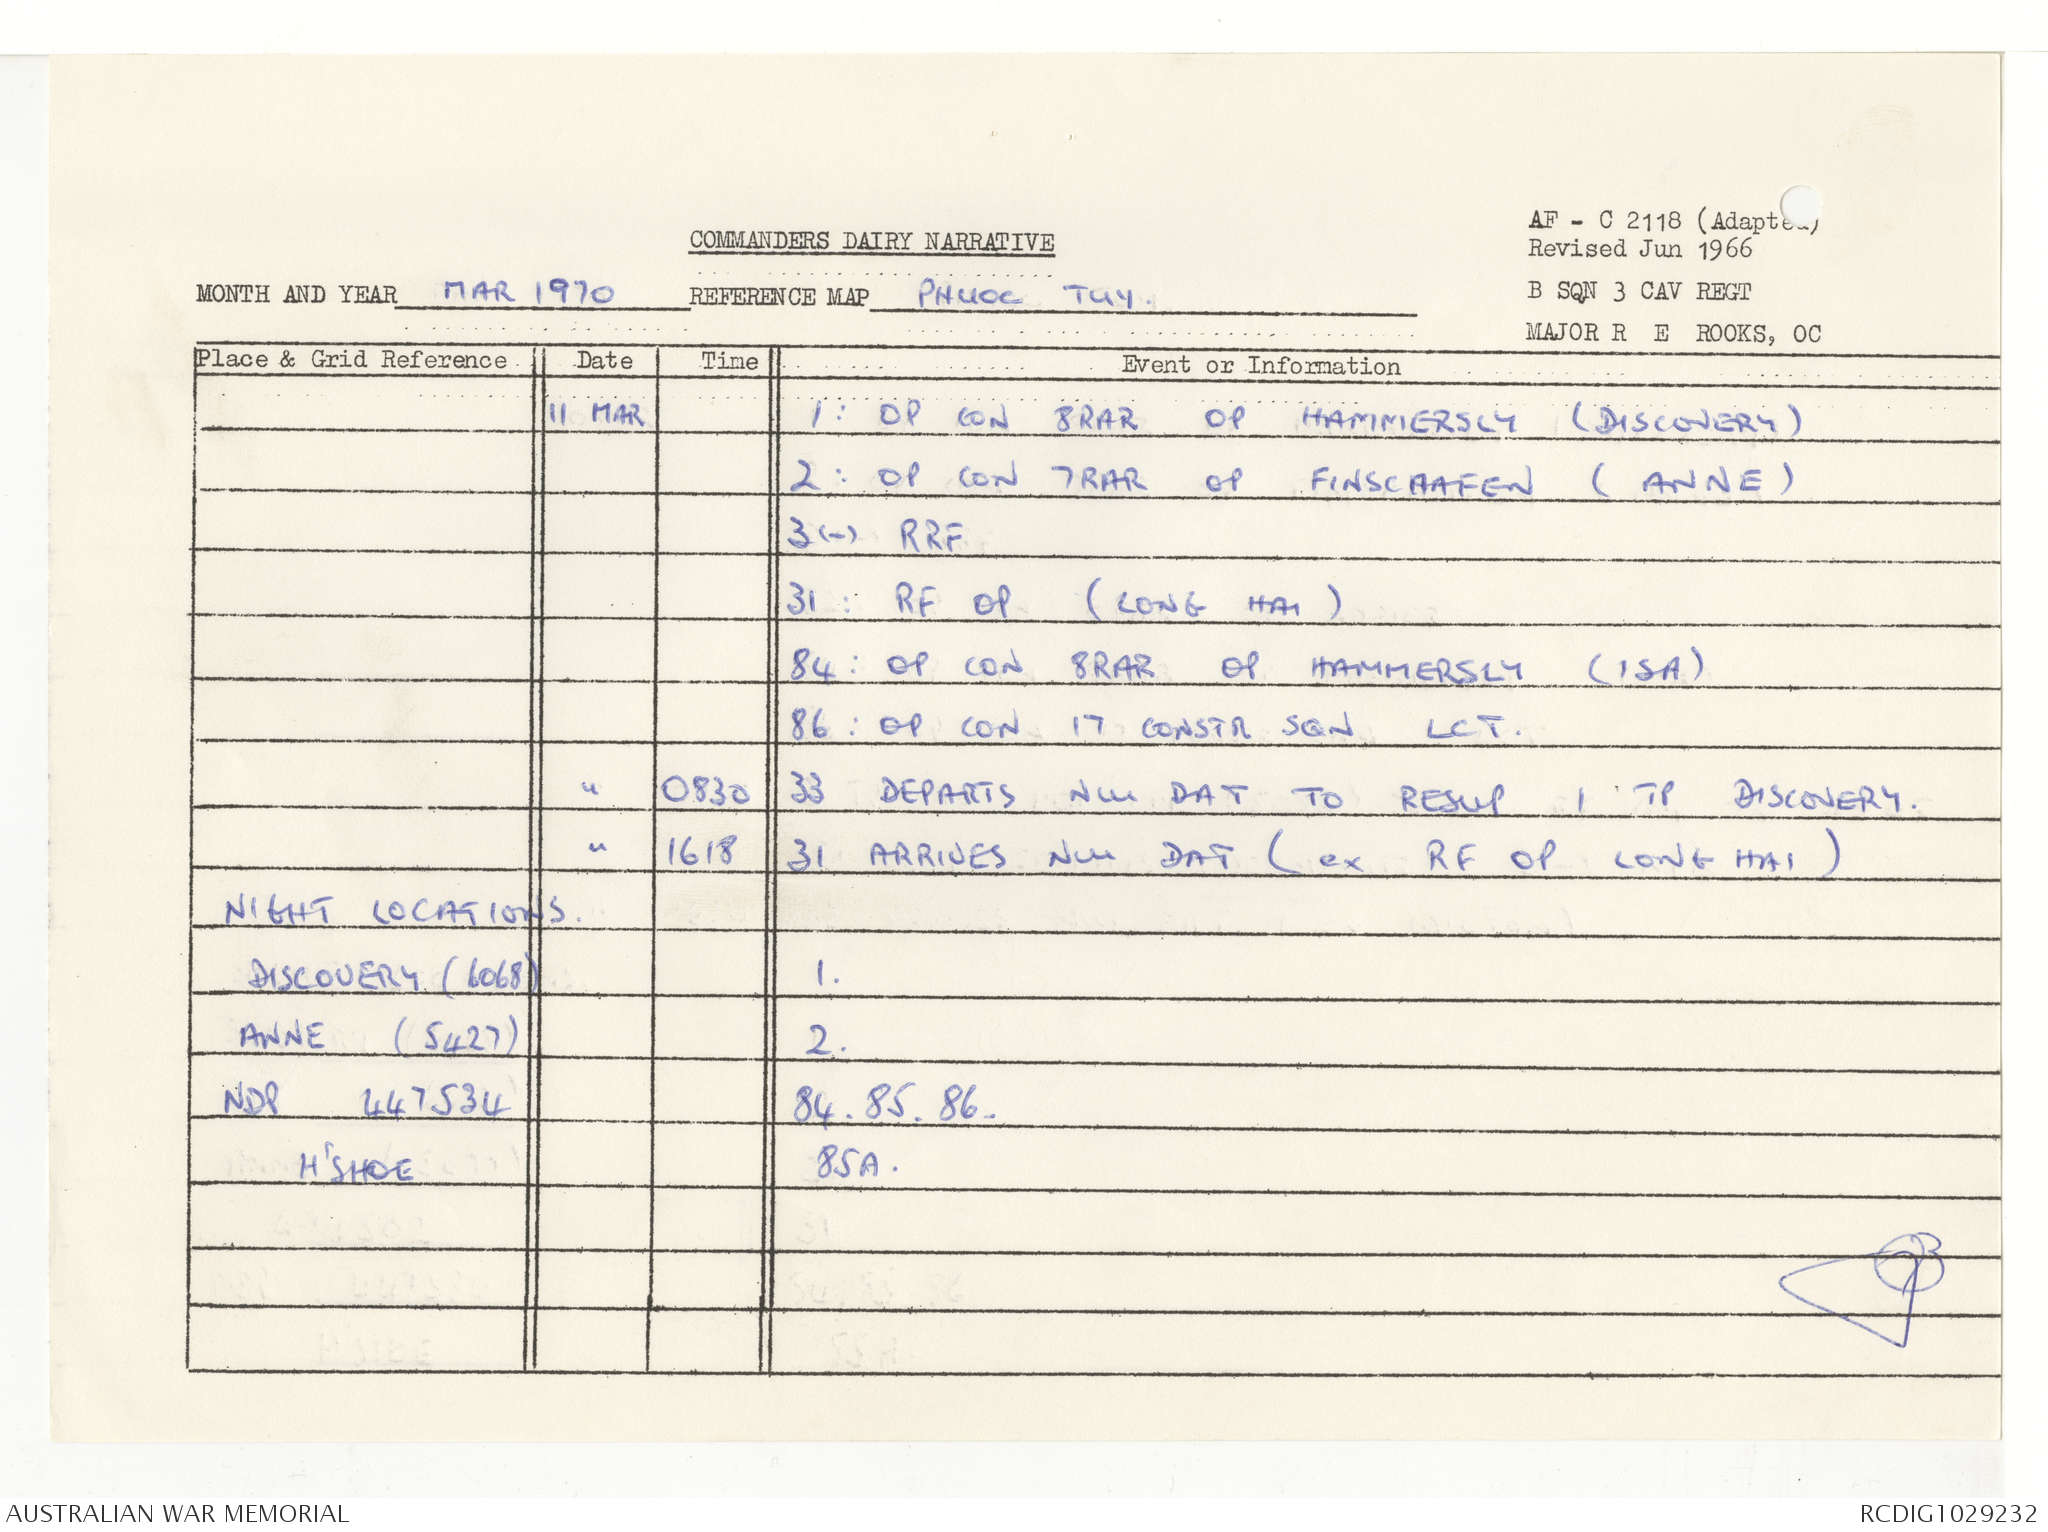 AF - C 2118 (Adapted)
COMMANDERS DAIRY NARRATIVE
Revised Jun 1966
MONTH AND YEAR MAR 1970 REFERENCE MAP PHUOC TUY.
B SQN 3 CAV REGT
MAJOR R E ROOKS, OC
Place & Grid Reference Date Time Event or Information
11 MAR 1: OP CON 8RAR OP HAMMERSLY (DISCOVERY)
2: OP CON 7RAR OP FINSCAAFEN (ANNE)
3(-) RRF
31: RF OP (LONG HAI)
84: OP CON 8RAR OP HAMMERSLY (ISA)
86: OP CON 17 CONSTR SQN LCT.
" 0830 33 DEPARTS NUI DAT TO RESUP 1 TP DISCOVERY.
" 1618 31 ARRIVES NUI DAT (ex RF OP LONG HAI)
NIGHT LOCATIONS.
DISCOVERY (6068) 1.
ANNE (5427) 2.
NDP 447534 84. 85. 86.
H'SHOE 85A.
AUSTRALIAN WAR MEMORIAL RCDIG1029232